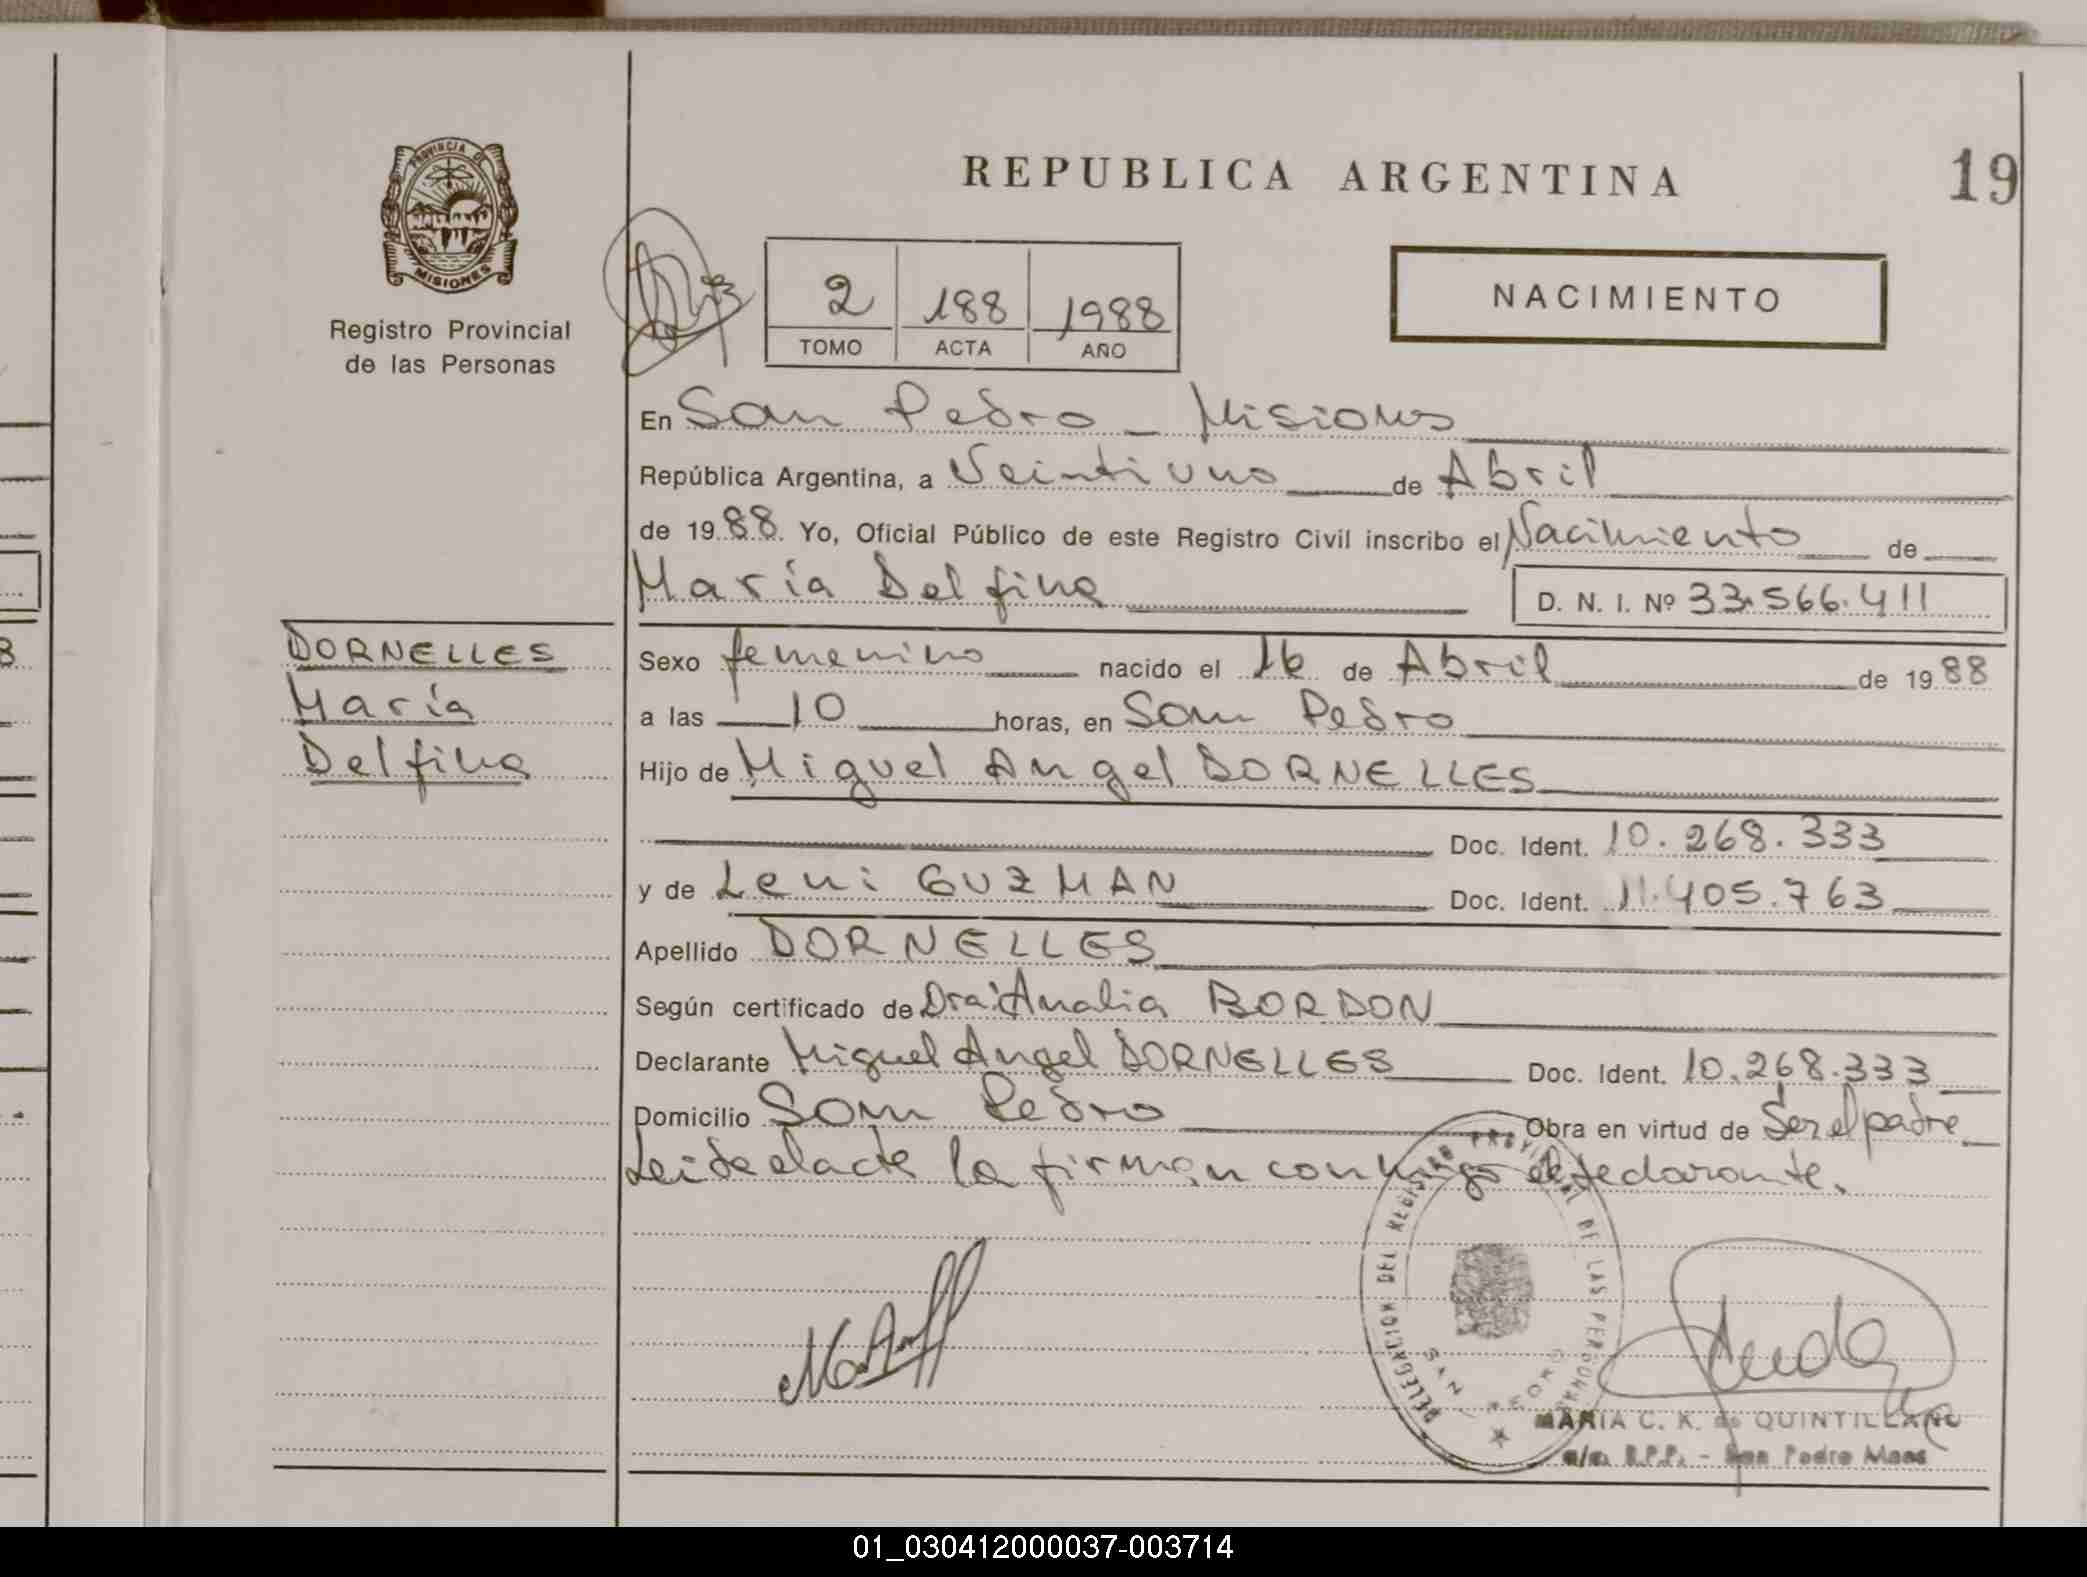 PROVINCIA DE
MISIONES
Registro Provincial
de las Personas
REPUBLICA ARGENTINA
19
2 188 1988
TOMO ACTA AÑO
NACIMIENTO
En San Pedro - Misiones
República Argentina, a Veintiuno de Abril
de 1988. Yo, Oficial Público de este Registro Civil inscribo el Nacimiento de
María Delfina
D. N. I. Nº 33.566.411
DORNELLES
María
Delfina
Sexo femenino nacido el 16 de Abril de 1988
a las 10 horas, en San Pedro
Hijo de Miguel Angel DORNELLES
Doc. Ident. 10.268.333
y de Leni GUZMAN Doc. Ident. 11.405.763
Apellido DORNELLES
Según certificado de Dra. Analia BORDON
Declarante Miguel Angel DORNELLES Doc. Ident. 10.268.333
Domicilio San Pedro Obra en virtud de Ser el padre
Leida el acta la firman conmigo el declarante.
DELEGACION DEL REGISTRO PROVINCIAL DE LAS PERSONAS
MARIA C. K. de QUINTILLANO
R.P.P. - San Pedro Mnes
01_030412000037-003714